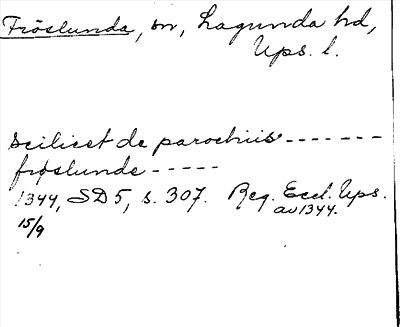 Fröslunda, sn, Lagunda hd,
Ups. l.
scilicet de parochiis -------
frøslunde -----
1344, SD 5, s. 307. Reg. Eccl. Ups.
av 1344.
15/9